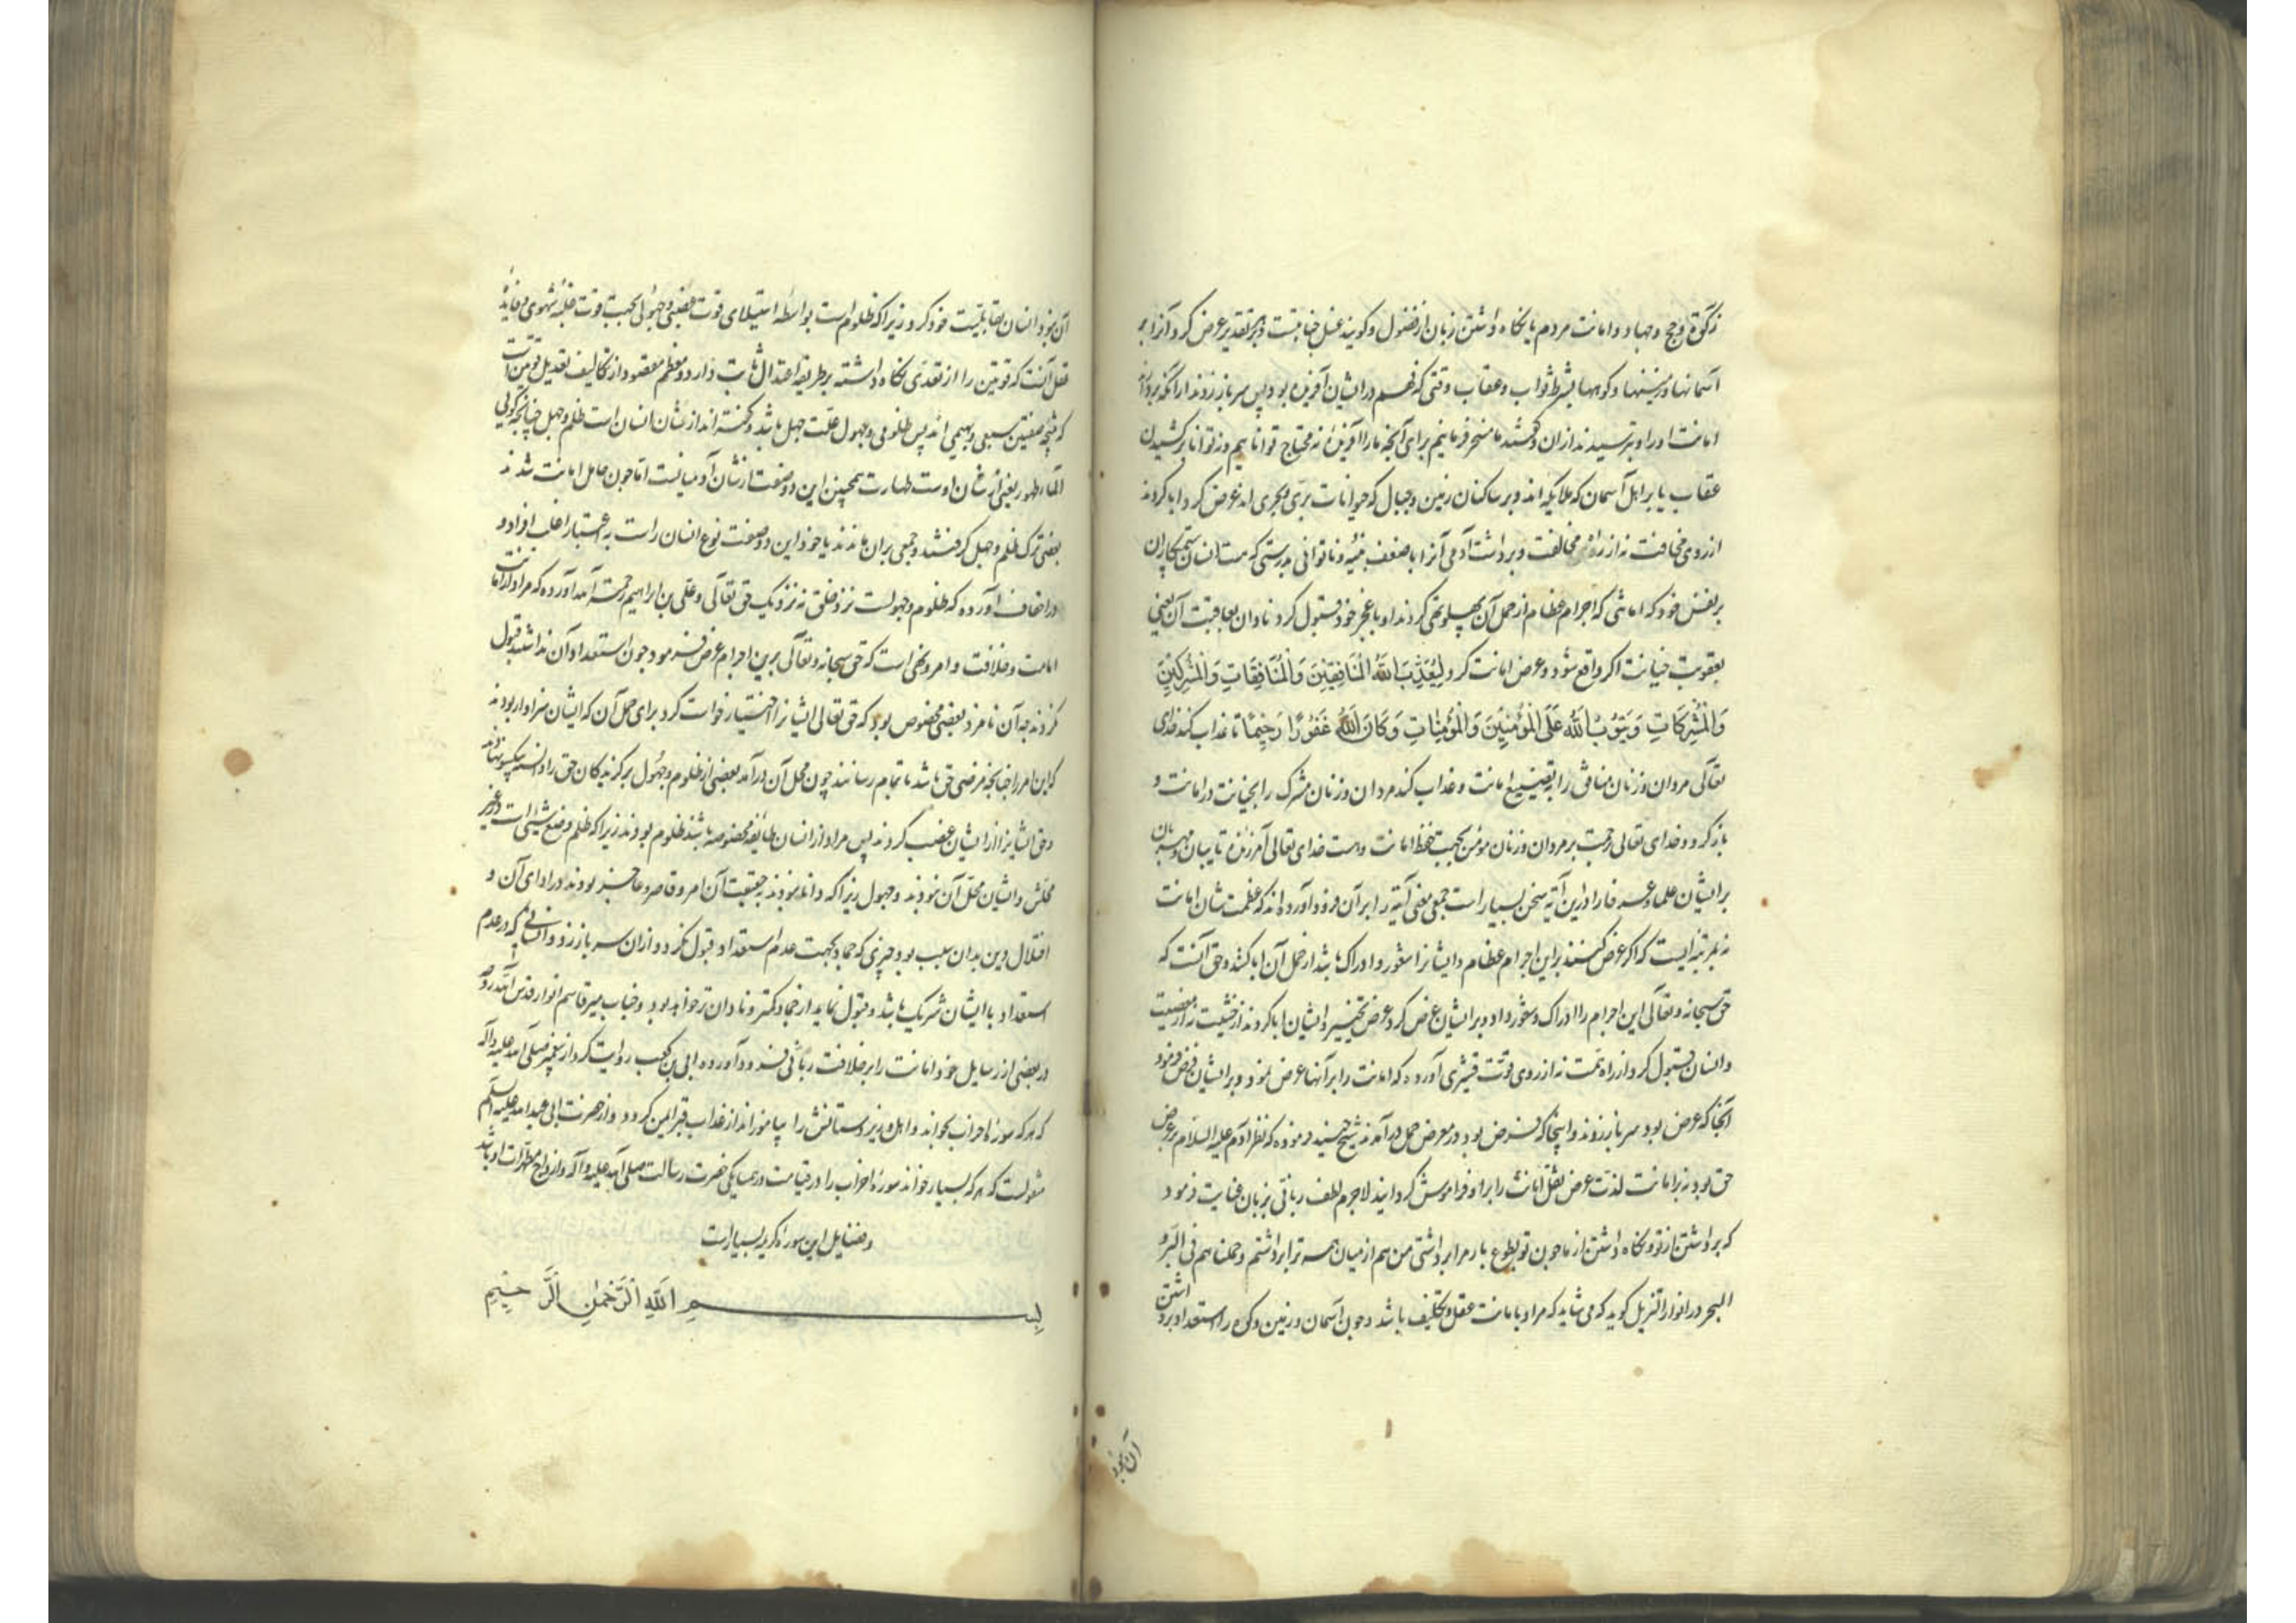 زکوة و حج و جهاد و امانت مردم یا نکاه داشتن زبان از فضول و کویند غسل جنابتست و بهر تقدیر عرض کرد آنرا بر
آسمانها و زمینها و کوهها بشرط ثواب و عقاب وقتی که فهم در ایشان آفریده بود پس سر باز زدند از آنکه بردارند
امانت او را و بترسیدند از ان و کفتند ما مسخر فرمانیم برای آنچه ما را آفریدهٔ نه محتاج ثوابیم و نه توانا بر کشیدن
عقاب یا بر اهل آسمان که ملایکه اند و بر ساکنان زمین و جبال که حیوانات بری و بحری اند عرض کرد ابا کردند
از روی مخافت نه از راه مخالفت و برداشت آدمی آنرا با ضعف بنیه و ناتوانی بدرستی که هست انسان ستمکاران
بر نفس خود که امانتی که اجرام عظام از حمل آن پهلو تهی کردند او با عجز خود قبول کرد نادان بعاقبت آن یعنی
بعقوبت خیانت اکر واقع شود و عرض امانت کرد لِیُعَذِّبَ اللهُ الْمُنَافِقِینَ وَالْمُنَافِقَاتِ وَالْمُشْرِکِینَ
وَالْمُشْرِکَاتِ وَیَتُوبَ اللهُ عَلَی الْمُؤْمِنِینَ وَالْمُؤْمِنَاتِ وَکَانَ اللهُ غَفُورًا رَحِیمًا تا عذاب کند خدای
تعالی مردان و زنان منافق را بتضییع امانت و عذاب کند مردان و زنان مشرک را بخیانت در امانت و
باز کردد خدای تعالی برحمت بر مردان و زنان مؤمن بجهت حفظ امانت و هست خدای تعالی آمرزندهٔ تایبان و مهربان
بر ایشان علما و عرفا را درین آیه سخن بسیار است جمعی معنی آیه را بر آن فرود آورده اند که عظمت شان امانت
نه بمرتبهٔ ایست که اکر عرض کنند بر این اجرام عظام و ایشانرا شعور و ادراک باشد از حمل آن ابا کنند و حق آنست که
حق سبحانه و تعالی این اجرام را ادراک و شعور داد و بر ایشان عرض کرد عرض تخییر و ایشان ابا کردند از خشیت نه از معصیت
و انسان قبول کرد از راه همت نه از روی قوت قشیری آورده که امانت را بر آنها عرض نمود و بر ایشان فرض فرمود
آنجا که عرض بود سر باز زدند و اینجا که فرض بود در معرض حمل درآمدند شیخ جنید فرموده که نظر آدم علیه السلام بر عرض
حق بود نه بر امانت لذت عرض ثقل امانت را بر او فراموش کردانید لاجرم لطف ربانی بزبان عنایت فرمود
که برداشتن از تو و نکاه داشتن از ما چون تو بطوع بار مرا برداشتی من هم از میان همه ترا برداشتم و حملناهم فی البر و
البحر در انوار التنزیل کوید که می شاید که مراد بامانت عقل و تکلیف باشد و چون آسمان و زمین و کوه را استعداد برداشتن
آن نبود
آن نبود انسان بقابلیت خود کرد زیرا که ظلوم است بواسطهٔ استیلای قوت غضبی و جهولی بجهت قوت غلبهٔ شهوی و فایدهٔ
عقل آنست که قوتین را از تعدی نکاه داشته بر طریقهٔ اعتدال ثابت دارد و معظم مقصود از تکالیف تعدیل قوتین است
که نتیجهٔ صفتین سبعی و بهیمی اند پس ظلومی و جهولی علت حمل باشد و کفته اند از شان انسان است ظلم و جهل چنانچه کویی
الماء طهور یعنی از شان اوست طهارت همچنین این دو صفت از شان آدمیانست اما چون حامل امانت شدند
بعضی ترک ظلم و جهل کرفتند و جمعی بران ماندند یا خود این دو صفت نوع انسان راست به اعتبار اغلب افراد و
آورده که ظلوم و جهولست نزد خلق نه نزدیک حق تعالی و علی بن ابراهیم رحمة الله آورده که مراد از امانت
امامت و خلافت و امر و نهی است که حق سبحانه و تعالی برین اجرام عرض فرمود چون استعداد آن نداشتند قبول
نکردند به آن نامزد بعضی مخصوص بود که حق تعالی ایشانرا اختیار خواست کرد برای حمل آن که ایشان سزاوار بودند
که این امر را چنانچه مرضی حق باشد باتمام رسانند چون محل آن درآمد بعضی از ظلوم و جهول برکزیدکان حق را دانسته یکسو نهادند
و حق ایشانرا از ایشان غصب کردند پس مراد از انسان طایفهٔ مخصوصه باشند ظلوم بودند زیرا که ظلم وضع شیء است در غیر
محلش و ایشان محل آن نبودند و جهول زیرا که دانا نبودند به حقیقت آن امر و قاصر و عاجز بودند در ادای آن و
اختلال دین بدان سبب بود و چیزی که جماد بجهت عدم استعداد قبول نکرد و از ان سر باز زد و انسانی که در عدم
استعداد با ایشان شریک باشد و قبول نماید از جماد کمتر و نادان تر خواهد بود و جناب میر قاسم انوار قدس الله روحه
در بعضی از رسایل خود امانت را بر خلافت ربانی فرود آورده ابی بن کعب روایت کرد از پیغمبر صلی الله علیه و آله
که هر که سورهٔ احزاب بخواند و اهل و زیردستانش را بیاموزاند از عذاب قبر ایمن کردد و از حضرت ابی عبدالله علیه السلام
منقولست که هر که بسیار خواند سورهٔ احزاب را در قیامت در همسایکی حضرت رسالت صلی الله علیه و آله و ازواج مطهرات او باشد
و فضایل این سوره کریمه بسیار است
بِسمِ اللهِ الرَّحْمنِ الرَّحِیمِ